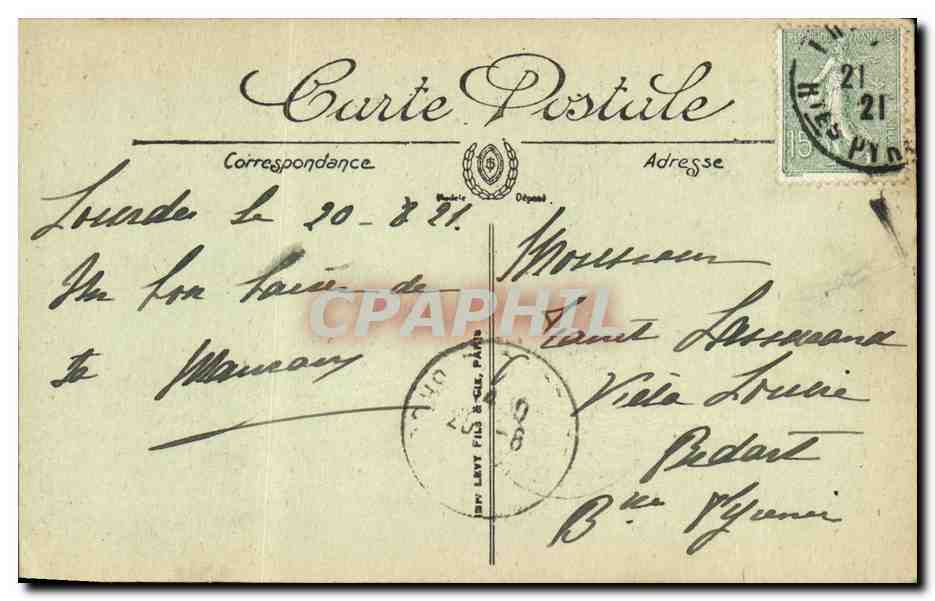 Carte Postale
Correspondance
Adresse
Modèle Déposé
RÉPUBLIQUE FRANÇAISE
15
21
21
HTES PYR
Lourdes le 20-8 21.
Un bon baiser de
ta Maman
Monsieur
Villa Louise
Bidart
Bses Pyrénées
IMP. LEVY FILS & CIE, PARIS
CPAPHIL